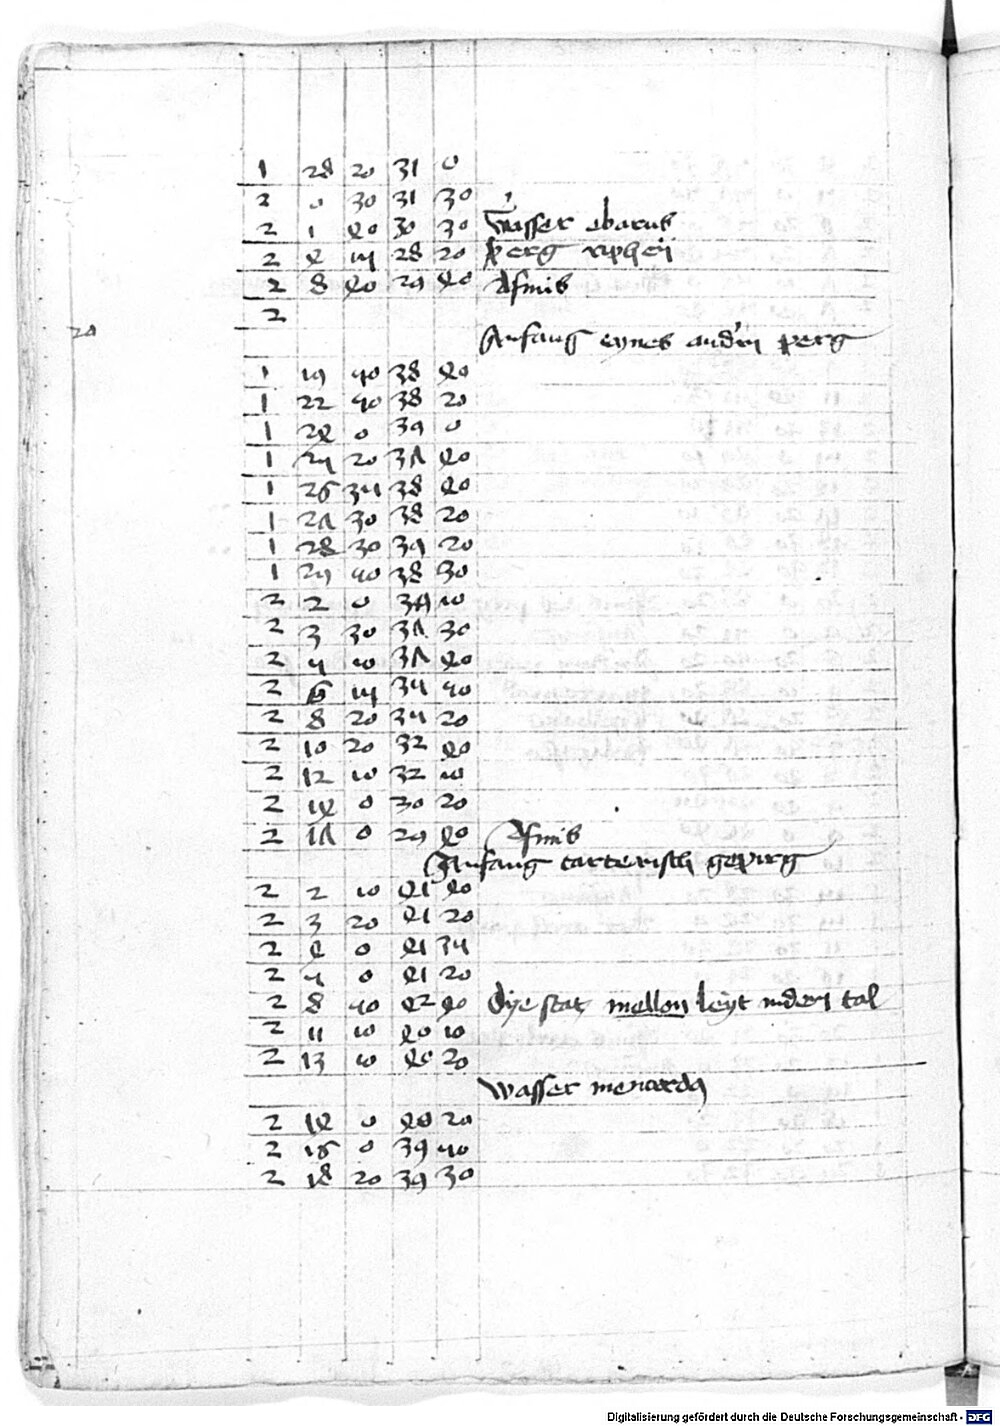 1 28 20 31 0
2 0 30 31 30
2 1 40 30 30 Wasser abarus
2 4 15 28 20 perg ripheij
2 8 40 29 40 Afinis
2
20
Anfang eynes andern perg
1 19 50 38 40
1 22 50 38 20
1 24 0 39 0
1 25 20 37 40
1 26 35 38 40
1 27 30 38 20
1 28 30 39 20
1 29 50 38 30
2 2 0 10
2 3 30 37 30
2 5 10 37 40
2 6 15 35 50
2 8 20 35 20
2 10 20 32 40
2 12 10 32 10
2 14 0 30 20
2 17 0 29 40 Afinis
Anfang tarterisch gepirg
2 2 10 41 40
2 3 20 41 20
2 4 0 41 35
2 5 0 41 20
2 8 50 42 40 Dye stat mellon leyt indem tal
2 11 10 40 10
2 13 10 40 20
Wasser
2 14 0 40 20
2 16 0 39 50
2 18 20 39 30
Digitalisierung gefördert durch die Deutsche Forschungsgemeinschaft - DFG